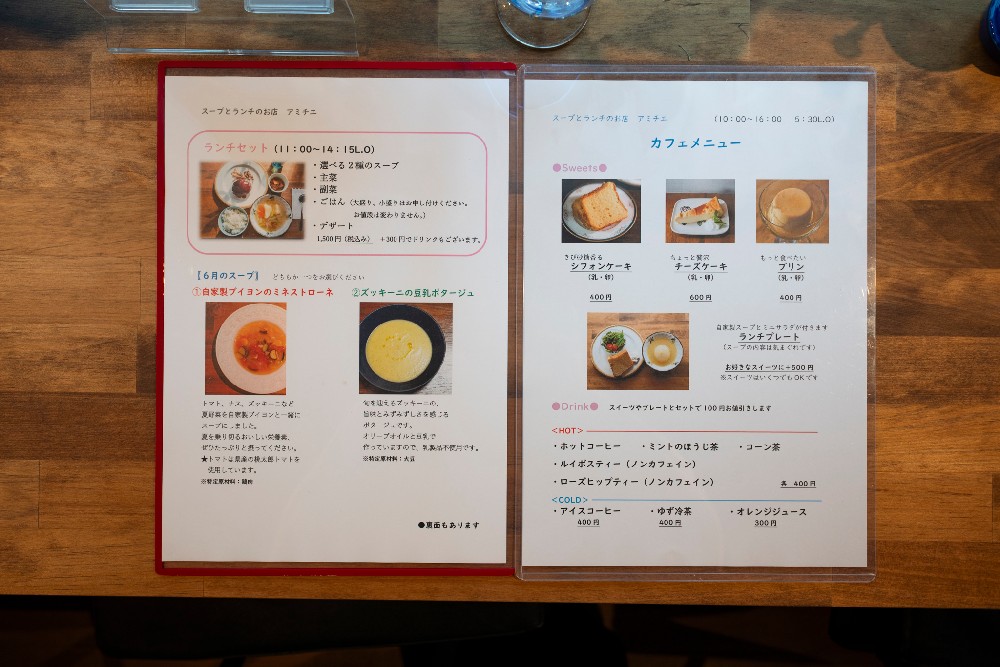 スープとランチのお店　アミチエ
ランチセット（11：00～14：15L.O）
・選べる２種のスープ
・主菜
・副菜
・ごはん（大盛り、小盛りはお申し付けください。
お値段は変わりません。）
・デザート
1,500円（税込み）　+300円でドリンクもございます。
【６月のスープ】　どちらか一つをお選びください
①自家製ブイヨンのミネストローネ
トマト、ナス、ズッキーニなど
夏野菜を自家製ブイヨンと一緒に
スープにしました。
夏を乗り切るおいしい栄養素、
ぜひたっぷりと摂ってください。
★トマトは県産の桃太郎トマトを
使用しています。
※特定原材料：鶏肉
②ズッキーニの豆乳ポタージュ
旬を迎えるズッキーニの、
旨味とみずみずしさを感じる
ポタージュです。
オリーブオイルと豆乳で
作っていますので、乳製品不使用です。
※特定原材料：大豆
●裏面もあります
スープとランチのお店　アミチエ　（10：00～16：00　5：30L.O）
カフェメニュー
●Sweets●
きび砂糖香る
シフォンケーキ
（乳・卵）
400円
ちょっと贅沢
チーズケーキ
（乳・卵）
600円
もっと食べたい
プリン
（乳・卵）
400円
自家製スープとミニサラダが付きます
ランチプレート
（スープの内容は気まぐれです）
お好きなスイーツに+500円
※スイーツはいくつでもOKです
●Drink●　スイーツやプレートとセットで100円お値引きします
＜HOT＞
・ホットコーヒー　・ミントのほうじ茶　・コーン茶
・ルイボスティー（ノンカフェイン）
・ローズヒップティー（ノンカフェイン）　各　400円
＜COLD＞
・アイスコーヒー　・ゆず冷茶　・オレンジジュース
400円　400円　300円